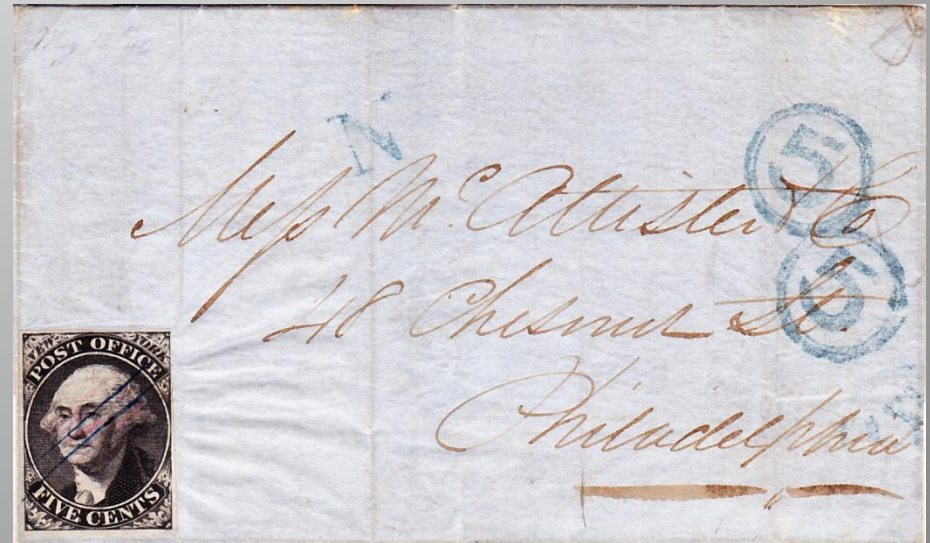 N
5
Mess McAllister & Co
5
48 Chesnut St.
Philadelphia
NEW YORK
POST OFFICE
FIVE CENTS